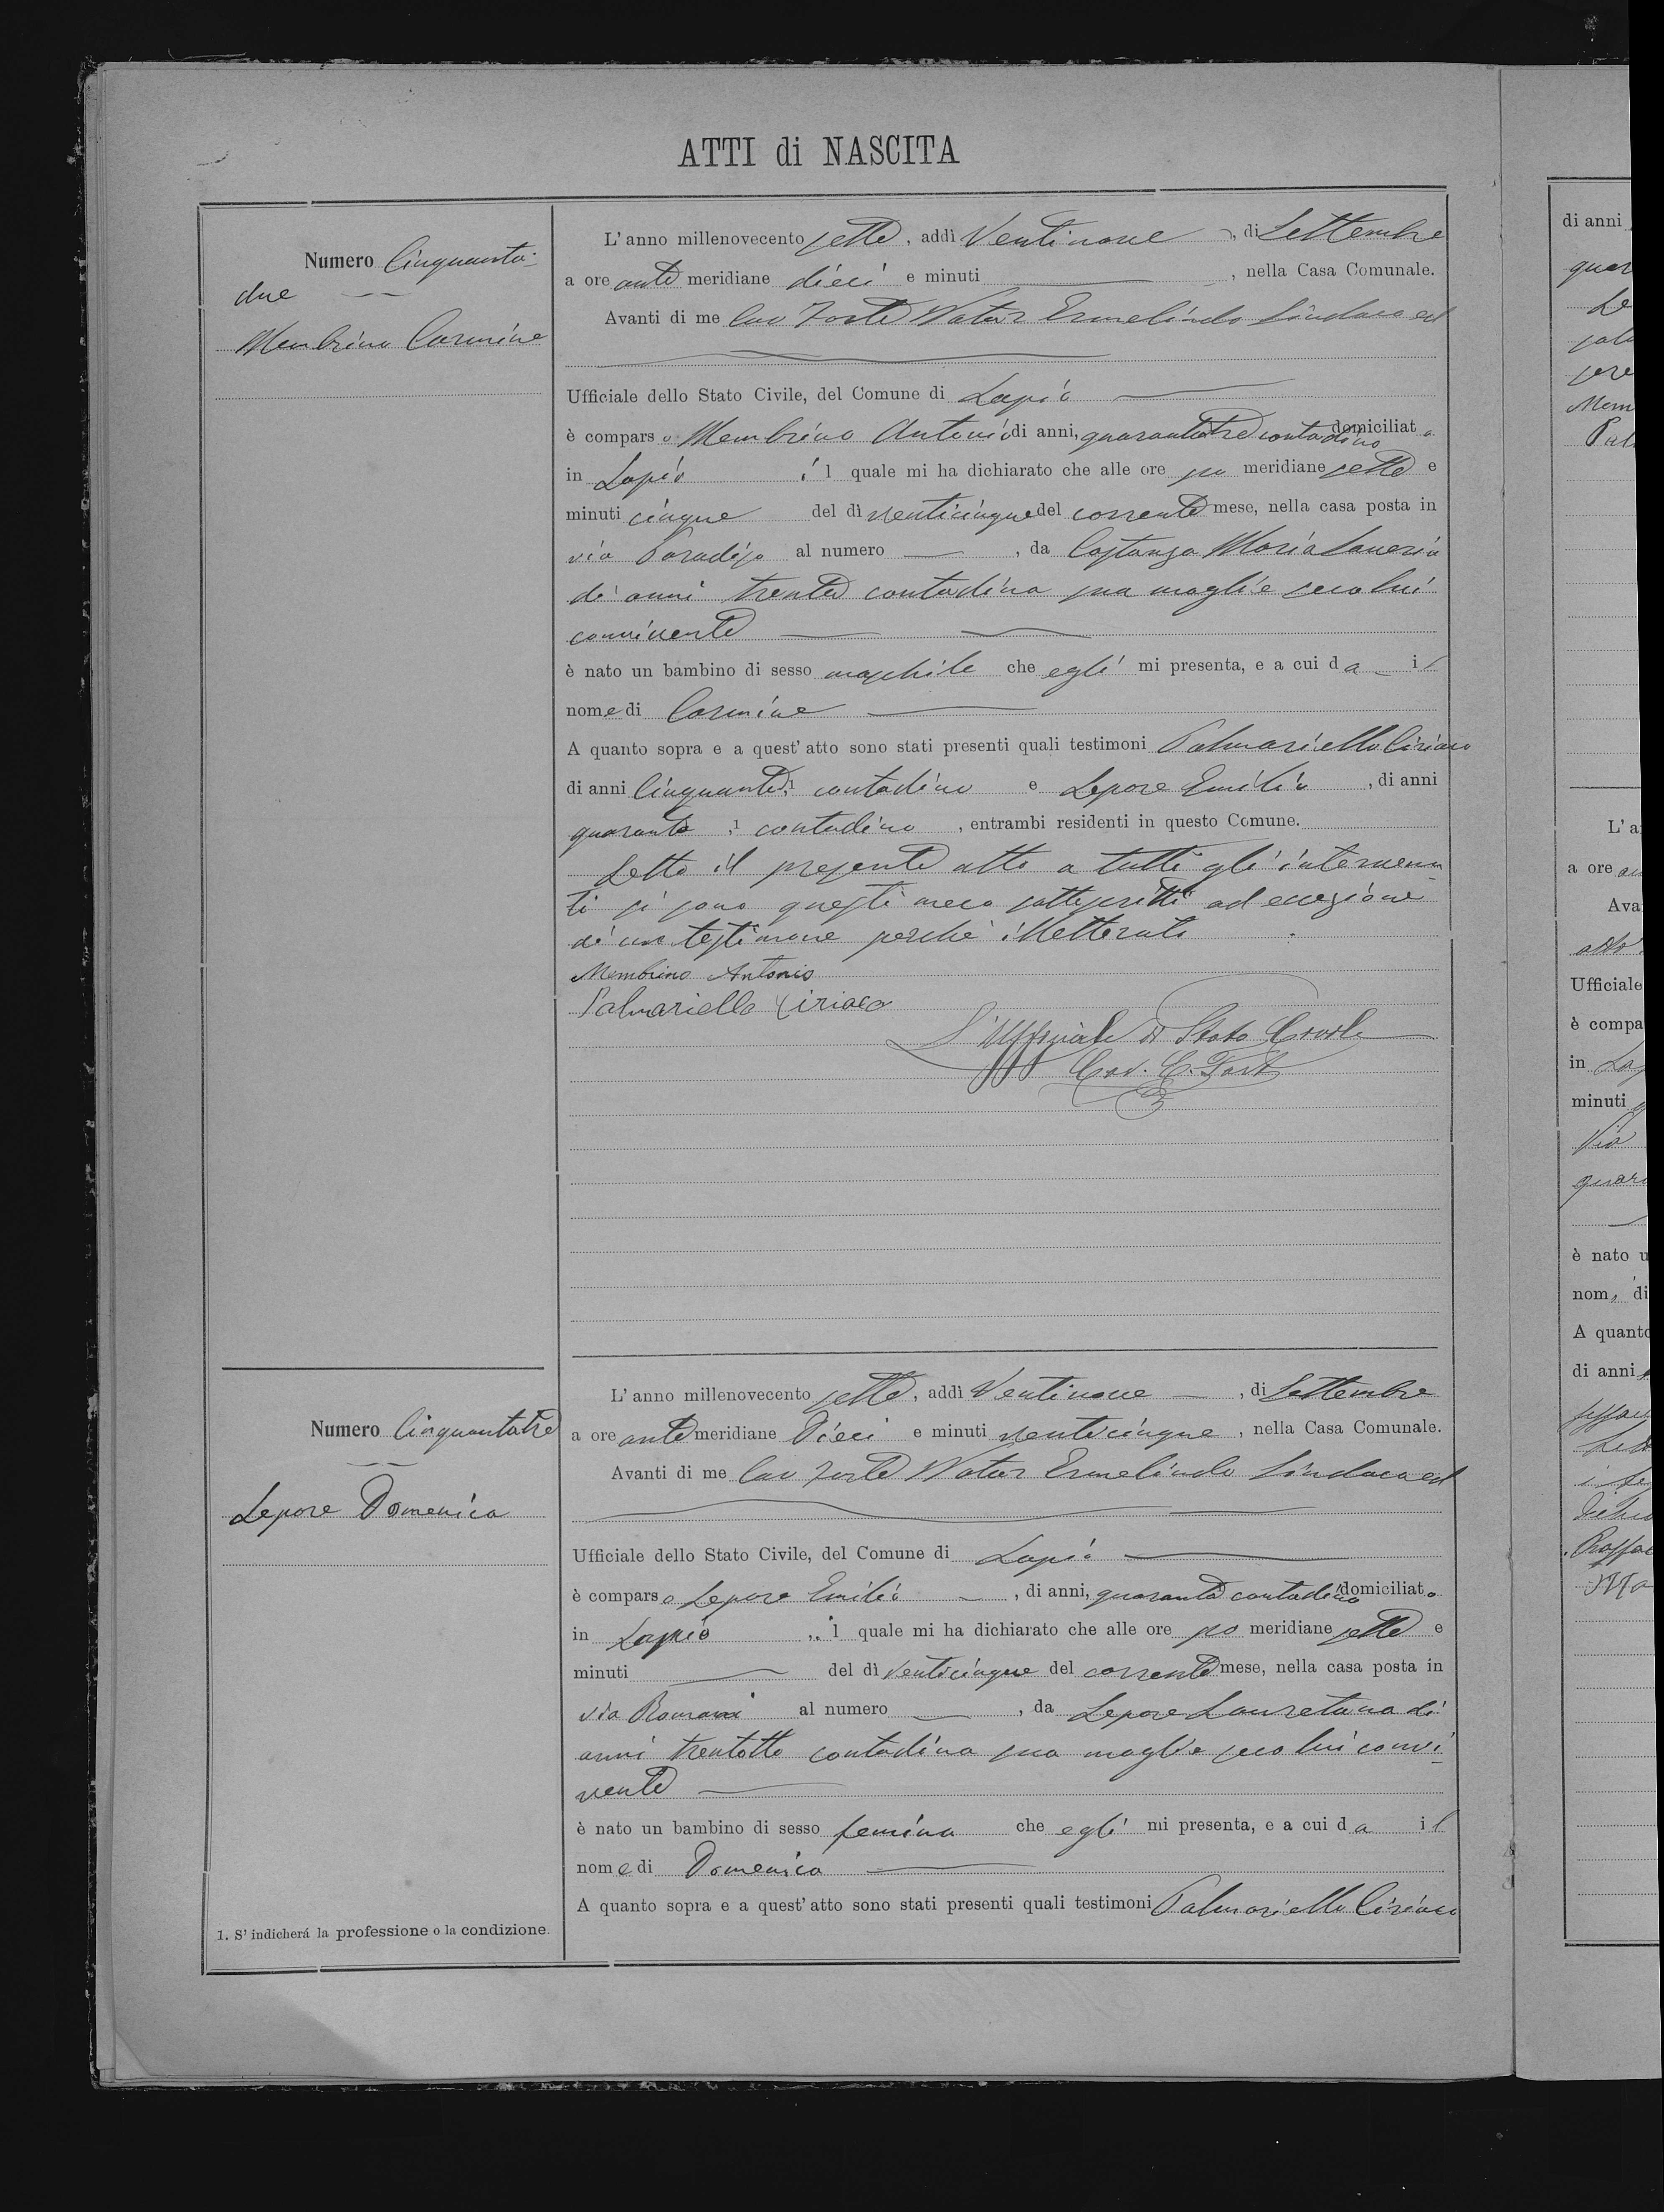 ATTI di NASCITA
Numero Cinquanta-
due
Membrino Carmine
L'anno millenovecento sette, addì Ventinove, di Settembre
a ore ante meridiane dieci e minuti, nella Casa Comunale.
Avanti di me Cav Forte Notar Ermelindo Sindaco ed
Ufficiale dello Stato Civile, del Comune di Lapio
è comparso Membrino Antonio di anni, quarantatre contadino domiciliato
in Lapio il quale mi ha dichiarato che alle ore po meridiane sette e
minuti cinque del dì venticinque del corrente mese, nella casa posta in
via Paradiso al numero, da Costanza Maria Saveria
di anni trenta contadina sua moglie seco lui
convivente
è nato un bambino di sesso maschile che egli mi presenta, e a cui da il
nome di Carmine
A quanto sopra e a quest'atto sono stati presenti quali testimoni Palmariello Ciriaco
di anni Cinquanta, 1 contadino e Lepore Emilio, di anni
quaranta, 1 contadino, entrambi residenti in questo Comune.
Letto il presente atto a tutti gli intervenu-
ti si sono questi meco sottoscritti ad eccezione
di un testimone perché illetterato.
Membrino Antonio
Palmariello Ciriaco
L'Uffiziale di Stato Civile
Cav. E. Forte
Numero Cinquantatre
Lepore Domenica
L'anno millenovecento sette, addì Ventinove, di Settembre
a ore ante meridiane Dieci e minuti venticinque, nella Casa Comunale.
Avanti di me Cav Forte Notar Ermelindo Sindaco ed
Ufficiale dello Stato Civile, del Comune di Lapio
è comparso Lepore Emilio, di anni, quaranta contadino domiciliato
in Lapio, il quale mi ha dichiarato che alle ore po meridiane sette e
minuti del dì venticinque del corrente mese, nella casa posta in
via Romani al numero, da Lepore Lauretana di
anni trentotto contadina sua moglie seco lui convi-
vente
è nato un bambino di sesso femina che egli mi presenta, e a cui da il
nome di Domenica
A quanto sopra e a quest'atto sono stati presenti quali testimoni Palmariello Ciriaco
1. S'indicherá la professione o la condizione.
di anni
quar
Le
Mem
Pal
L'a
a ore an
Ava
Ufficiale
è compa
in La
minuti
Via
quar
è nato u
nome di
A quanto
di anni